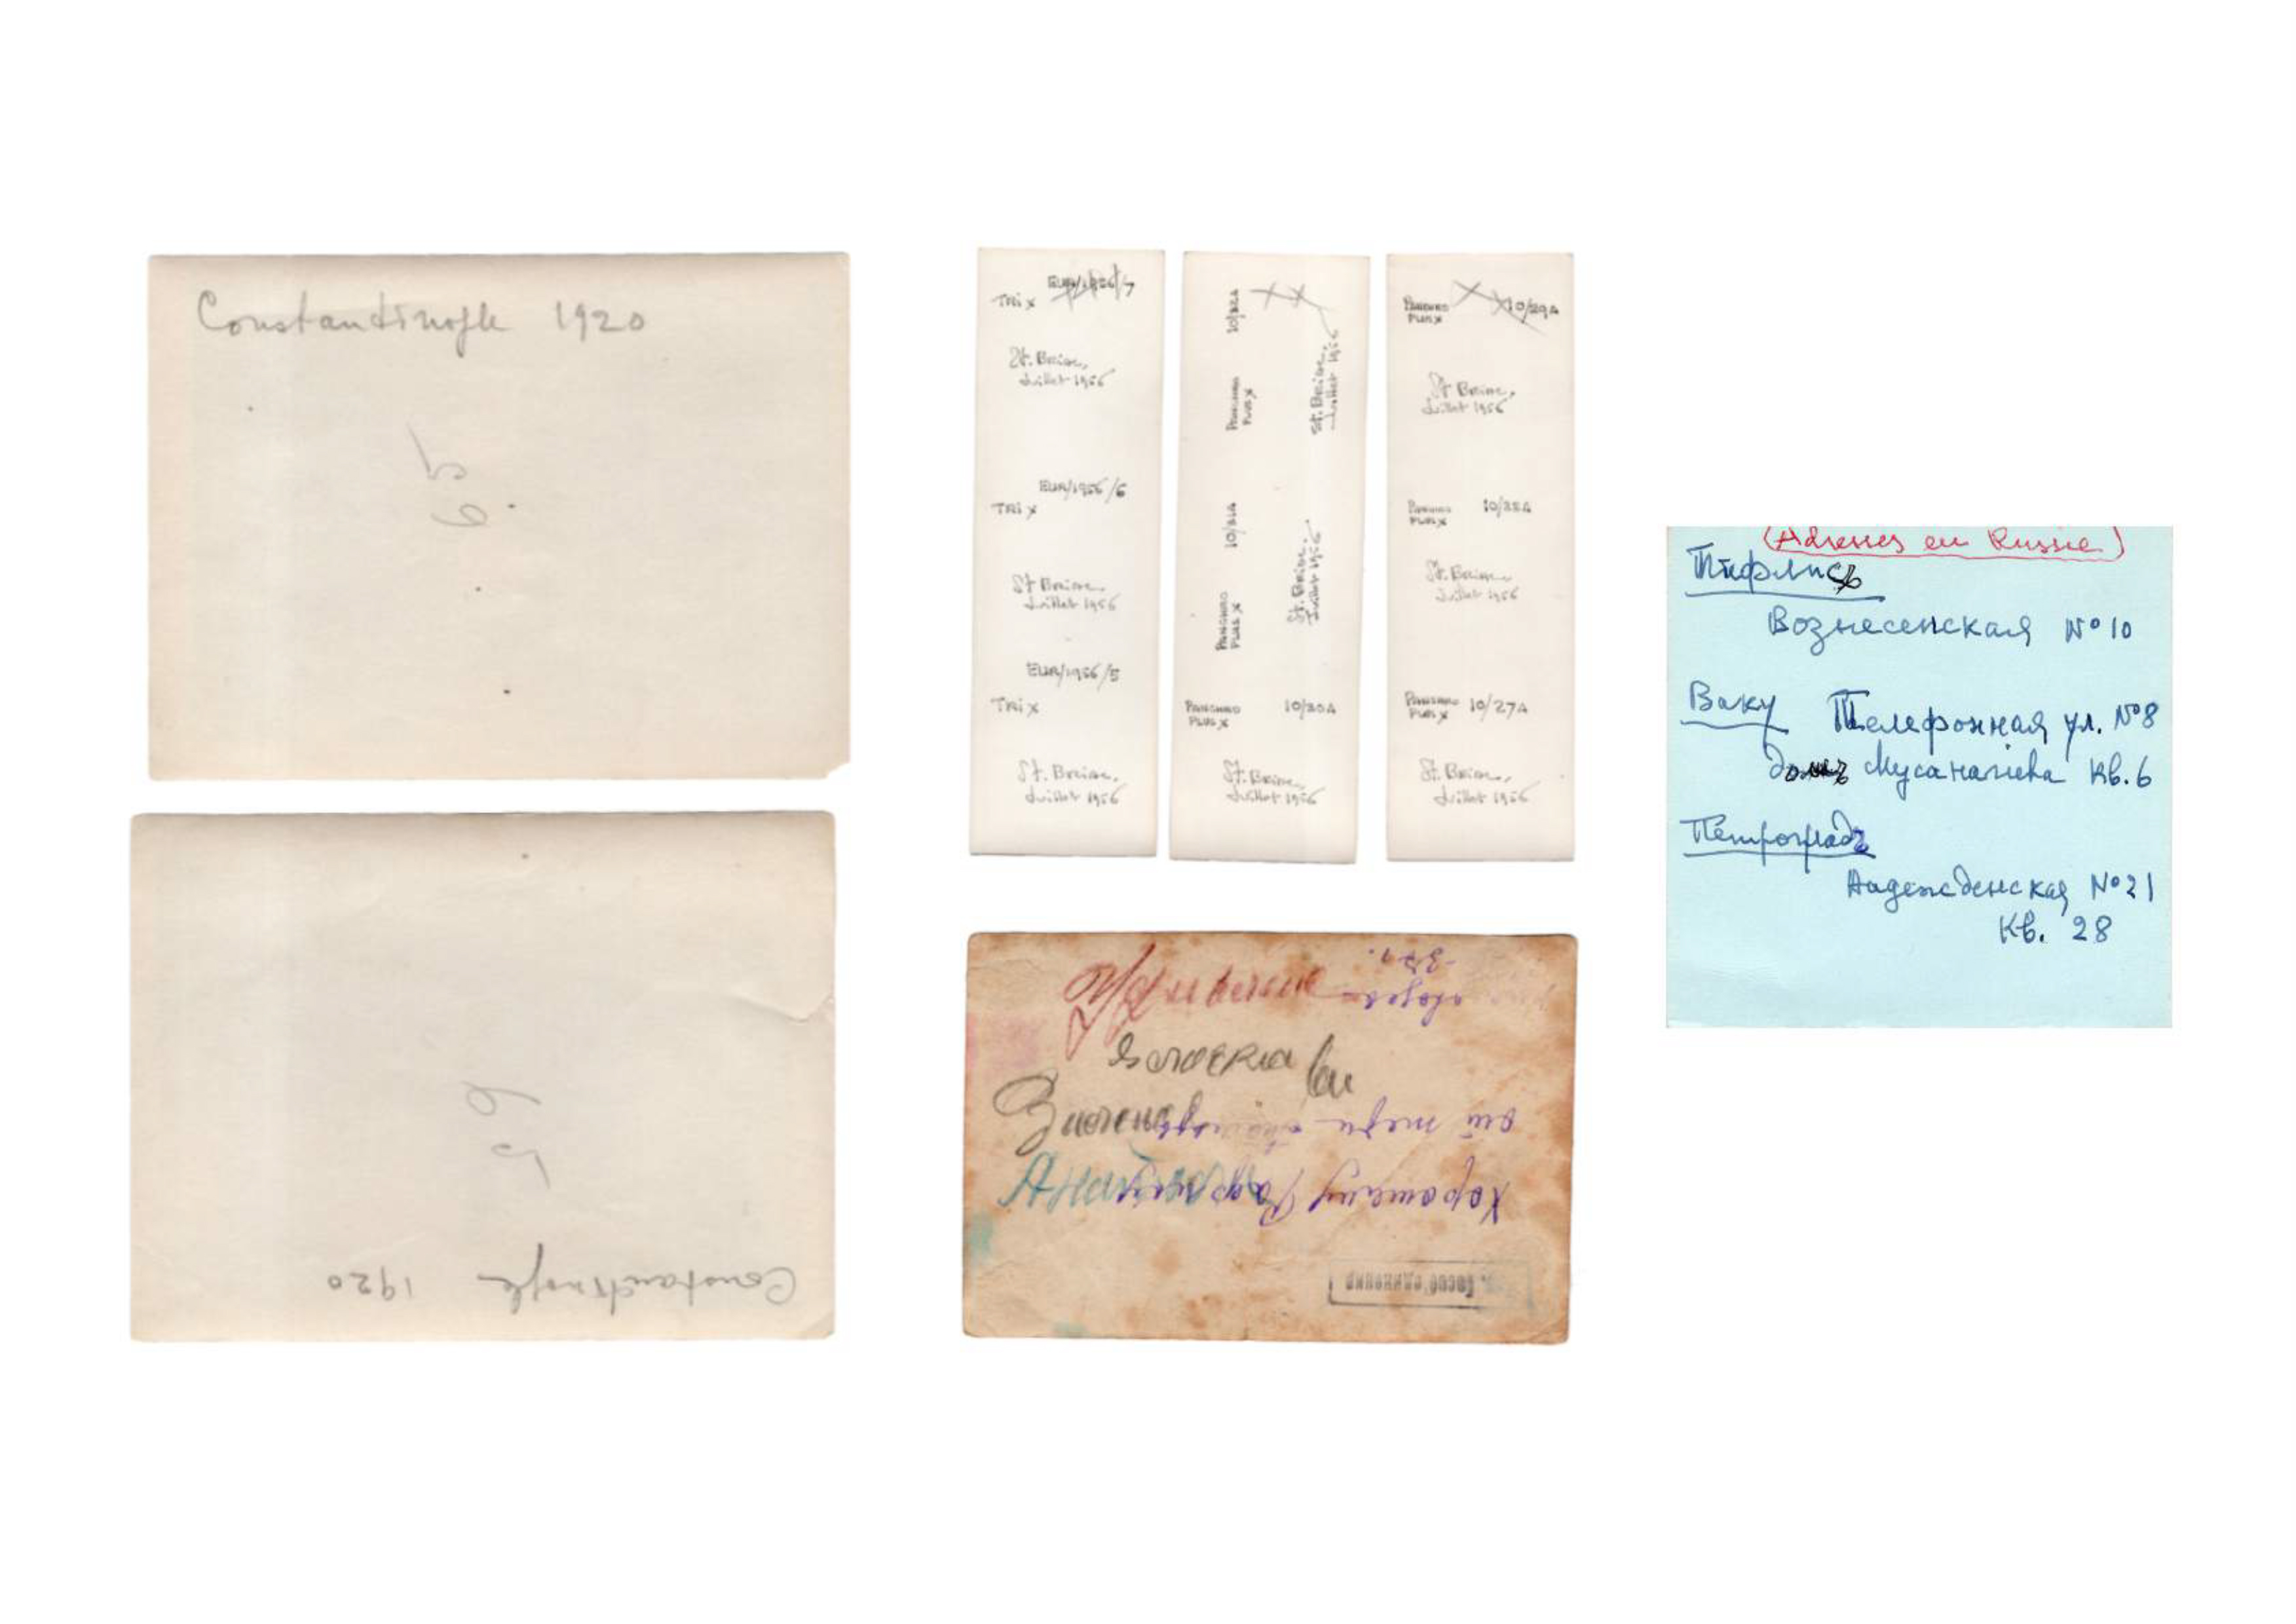 Constantinople 1920
Constantinople 1920
TRi X EUR/1956/7
St. Brieuc,
Juillet 1956
EUR/1956/6
TRi X
St Brieuc,
Juillet 1956
EUR/1956/5
TRi X
St. Brieuc,
Juillet 1956
10/32A
PANCHRO
PLUS X
St. Brieuc,
Juillet 1956
10/31A
PANCHRO
PLUS X
St. Brieuc,
Juillet 1956
PANCHRO
PLUS X 10/30A
St. Brieuc,
Juillet 1956
PANCHRO
PLUS X 10/29A
St Brieuc,
Juillet 1956
PANCHRO
PLUS X 10/28A
St. Brieuc,
Juillet 1956
PANCHRO
PLUS X 10/27A
St. Brieuc,
Juillet 1956
Хорошему
от
(Adresses en Russie)
Тифлисъ
Вознесенская № 10
Баку Телефонная ул. № 8
домъ Мусанагиева кв. 6
Петроградъ
Надежденская № 21
кв. 28